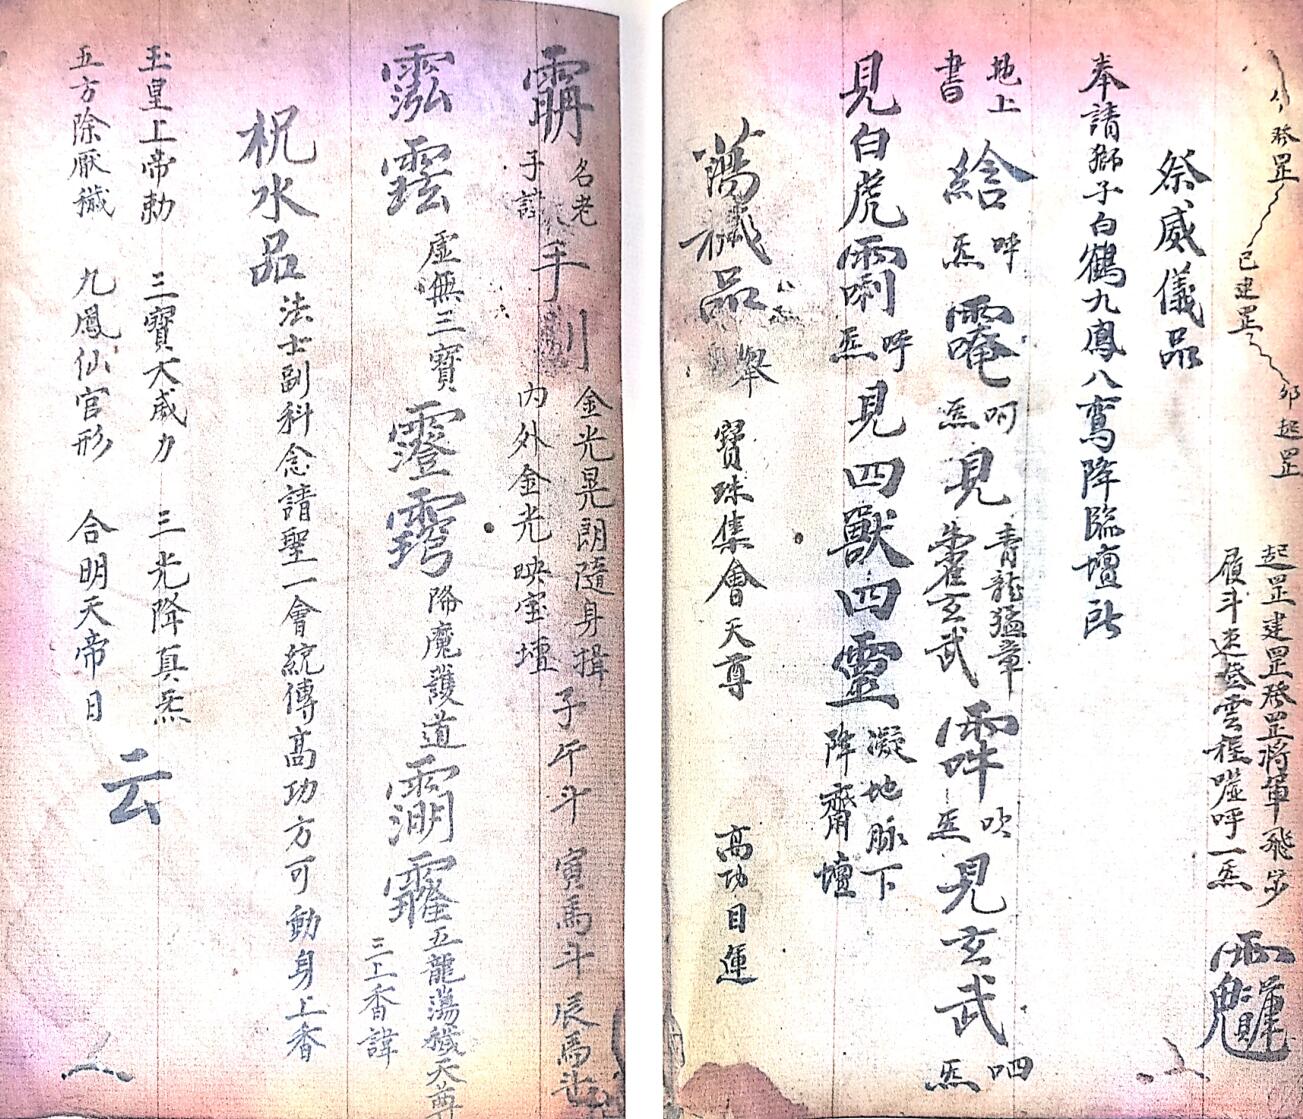 發罡
已建罡
卯起罡
起罡建罡發罡將軍飛步
履斗速登雲程噓呼一炁
祭威儀品
奉請獅子白鶴九鳳八鸞降臨壇所
地上
書
呼
炁
呵
炁
見
青龍猛章
玄武
吹
炁
見玄武
呬
炁
見白虎
呼
炁
見四獸四靈
凝地脉下
降齋壇
蕩穢品
舉
寶珠集會天尊
高功目運
名老
子諱
手
金光晃朗隨身攝
內外金光映宝壇
子午斗 寅馬斗 辰馬
虛無三寶
降魔護道
五龍蕩穢天尊
三上香諱
柷水品
法士副科念請聖一會統傳高功方可動身上香
玉皇上帝勅 三寶大威力 三光降真炁
五方除厭穢 九鳳仙官形 合明天帝日
云